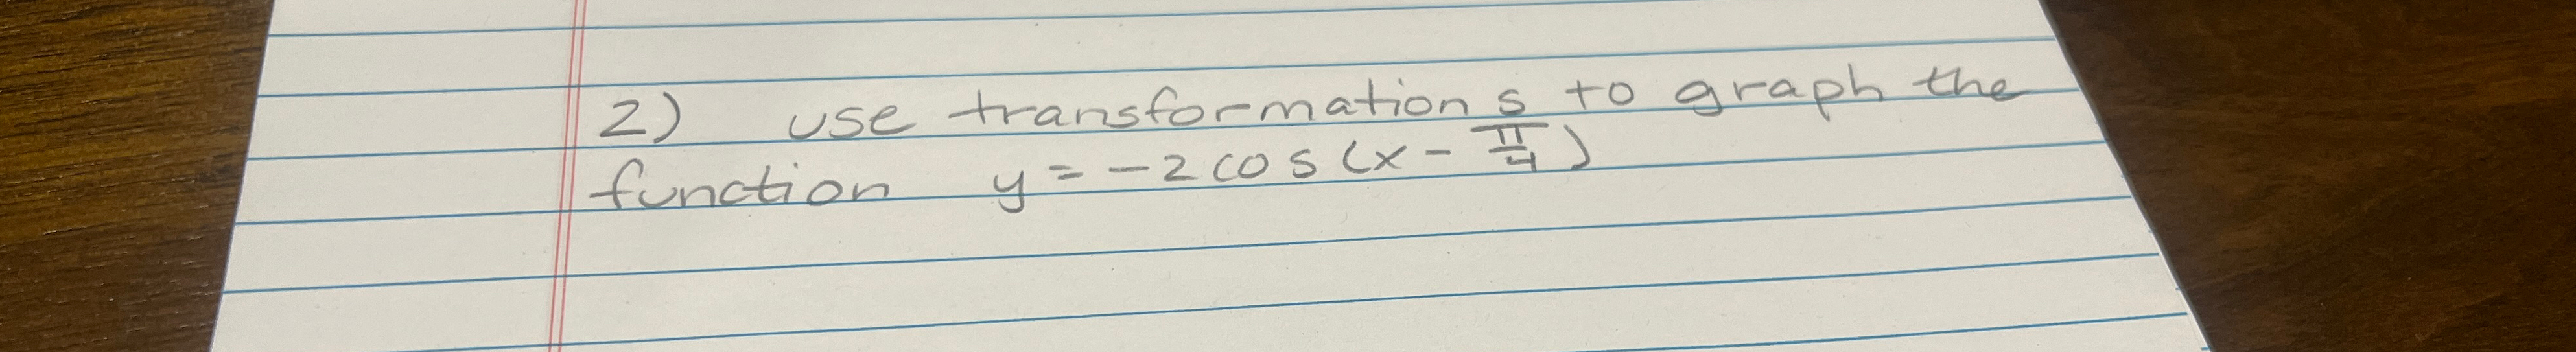 2) use transformations to graph the
function y = -2 cos (x - π/4)